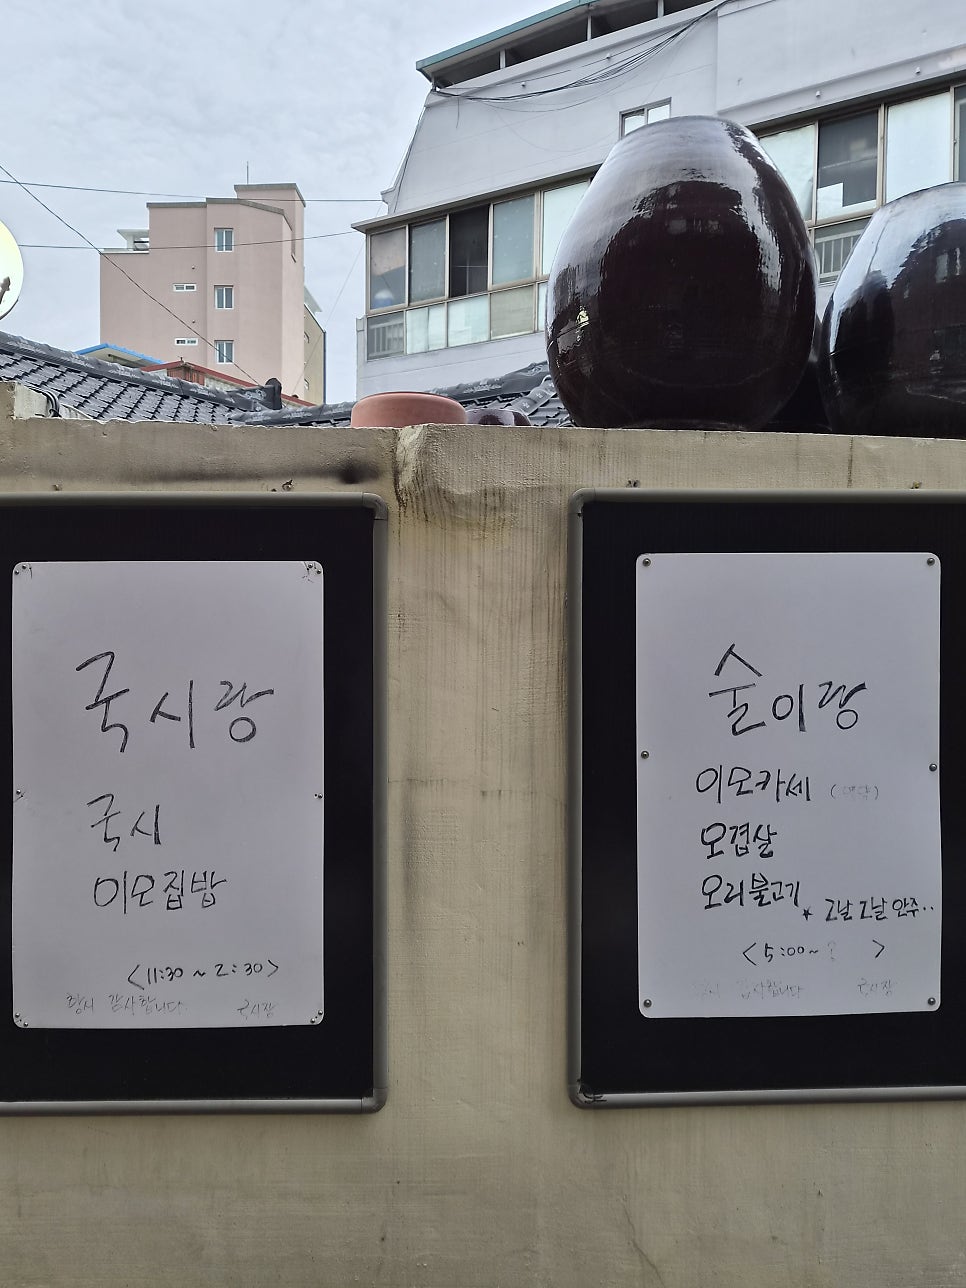 국시랑
국시
이모집밥
<11:30 ~ 2:30>
항시 감사합니다.
국시랑
술이랑
이모카세 (예약)
오겹살
오리불고기
* 그날 그날 안주..
<5:00~ ? >
항시 감사합니다
국시랑